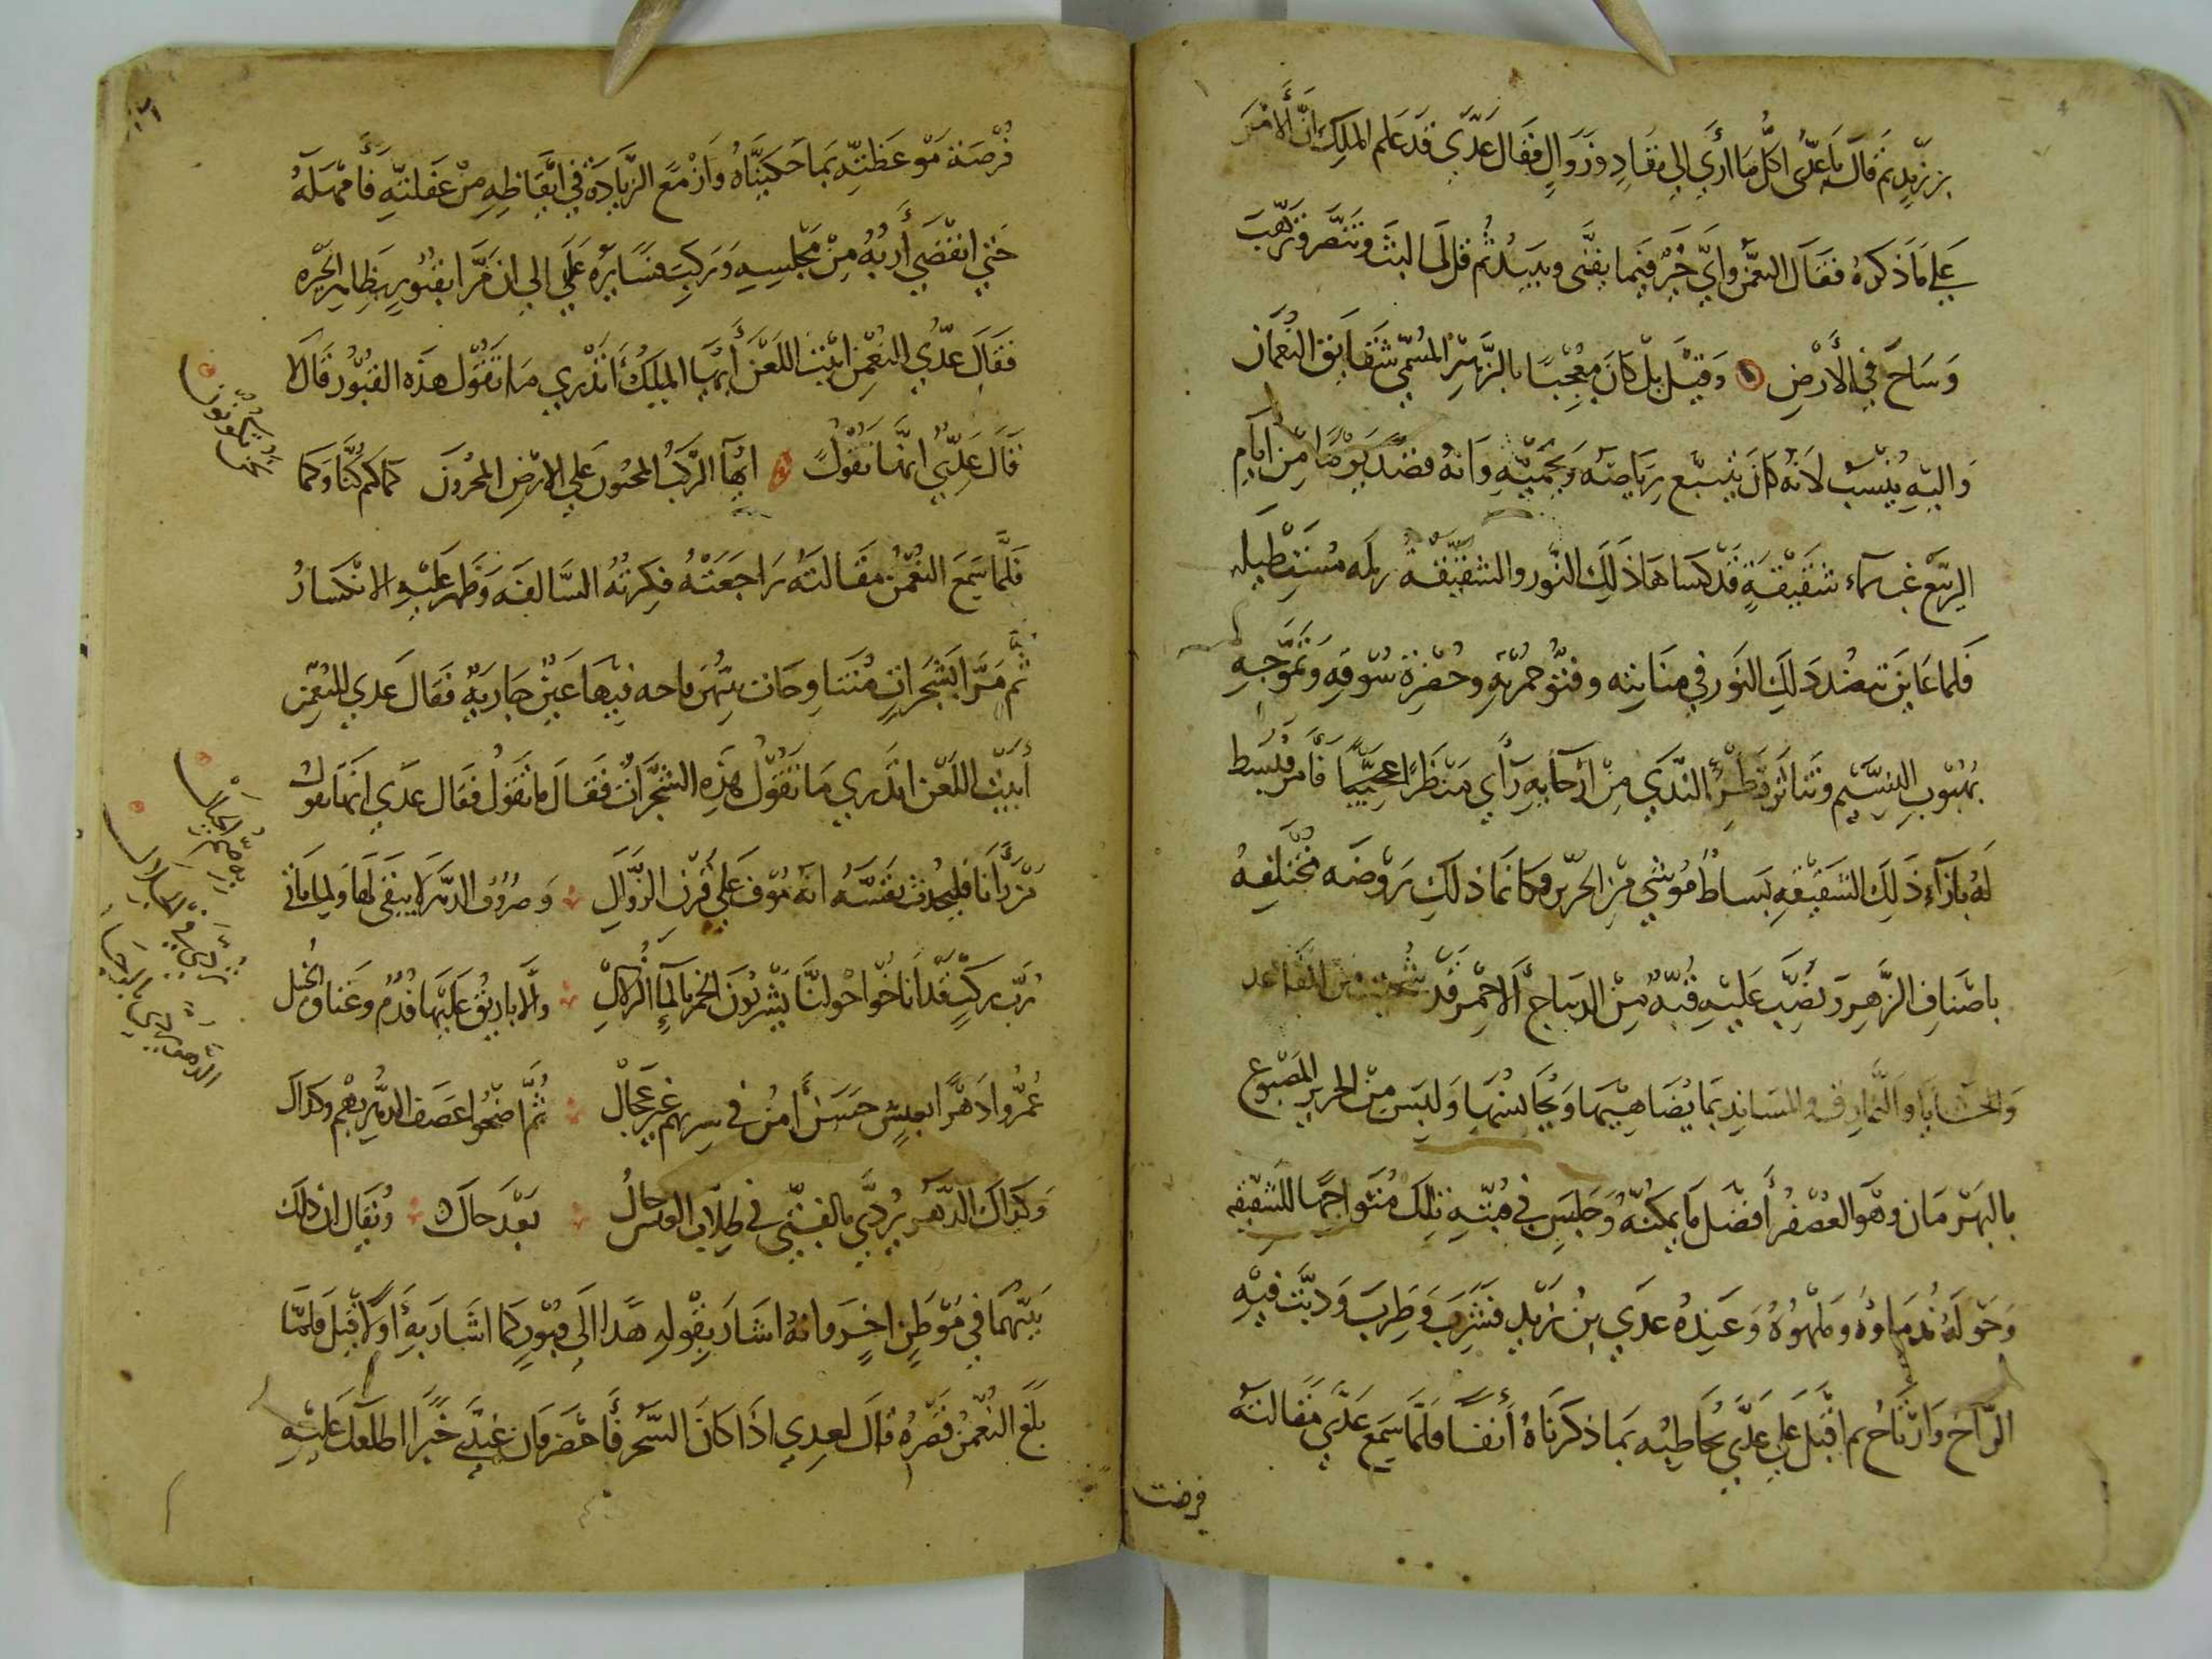 بن زيد ثم قال يا عدي اكل ما ارى الى نفاد وزوال فقال عدي قد علم الملك ان الامر
على ما ذكره فقال النعمن واي خير فيما يفنى ويبيد ثم قل ما لبث وتنصر وترهب
وساح في الارض وقيل بل كان معجبا بالزهر المسمى شقايق النعمان
واليه ينسب لانه كان يتبع رياضه ويحميه وانه قصد يوما من ايام
الربيع غب سماء شقيقة قد كساها ذلك النور والشقيقة رمله مستطيله
فلما عاين تنضد ذلك النور في منابته وقنو حمرته وخضرة سوقه وتموجه
بهبوب النسيم وتناثر قطر الندى من ارجايه راى منظرا عجيبا فامر فبسط
له بازاء ذلك الشقيقه بساط موشي من الحرير فكانما ذلك روضه مختلفه
باصناف الزهر ونصب عليه قبه من الديباج الاحمر قد
والحشايا والنمارق والمساند بما يضاهيها ويجانسها ولبس من الحرير المصبوغ
بالبهرمان وهو العصفر افضل ما يمكنه وجلس في قبته تلك متواجها للشقيقه
وحوله ندماوه وملهوه وعنده عدي بن زيد فشرب وطرب ودبت فيه
الراح وارتاح ثم اقبل على عدي يخاطبه بما ذكرناه انفا فلما سمع عدي مقالته
فرصت
فرصة موعظته بما حكيناه وازمع الزيادة في ايقاظه من غفلته فامهله
حتى انقضى اربه من مجلسه وركب فسايره على الى ان مرا بقبور بظاهر الحيره
فقال عدي للنعمن ابيت اللعن ايها الملك اتدري ما تقول هذه القبور قال لا
قال عدي انها تقول ايها الركب المخبون على الارض المجدون كما كنا وكما
فلما سمع النعمن مقالته راجعته فكرته السالفه وظهر عليه الانكسار
ثم مرا بشجرات متناوحات بينهن فيها عين جاريه فقال عدي للنعمن
ابيت اللعن اتدري ما تقول هذه الشجرات فقال ما تقول فقال عدي انها تقول
من رانا فليحدث نفسه انه موف على قرن الزوال وصروف الدهر لا يبقى لها ولما تاتي
رب ركب قد اناخوا حولنا يشربون الخمر بالماء الزلال والاباريق عليها فدم وعتاق الخيل
عمروا دهرا بعيش حسن امن في سربهم غير عجال ثم اضحوا عصف الدهر بهم وكذاك
وكذاك الدهر يردي بالفتى في طلاب العيش حال بعد حال ويقال ان ذلك
بينهما في موطن اخر وانه اشار بقوله هذا الى قبور كما اشار به اولا قبل فلما
بلغ النعمن قصره قال لعدي اذا كان السحر فاحضر فان عندي خبرا اطلعك عليه